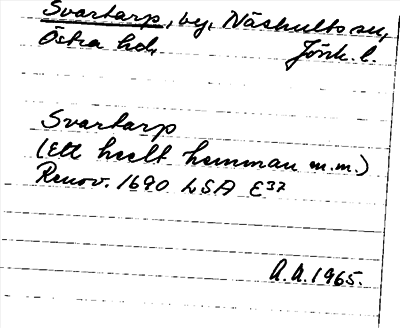 Svartarp, by, Näshults sn,
Östra hd, Jönk. l.
Svartarp
(Ett heelt hemman m.m.)
Renov. 1690 LSA E37
A.A. 1965.